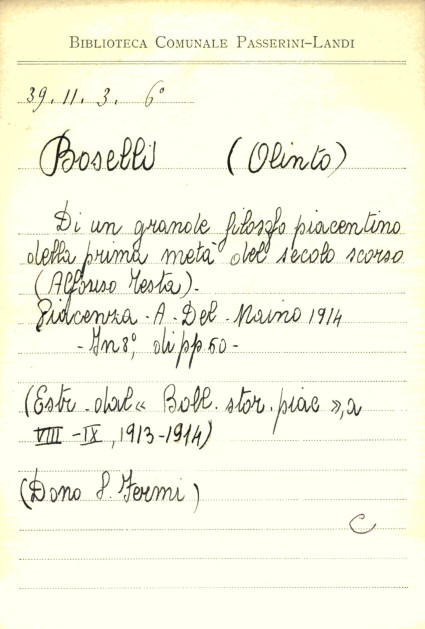 BIBLIOTECA COMUNALE PASSERINI-LANDI
39.11.3. 6°
Boselli (Olinto)
Di un grande filosofo piacentino
della prima metà del secolo scorso
(Alfonso Testa).
Piacenza - A. Del Maino 1914
- In 8°, di pp 50 -
(Estr. dal « Boll. stor. piac », a
VIII - IX, 1913-1914)
(Dono S. Fermi)
C